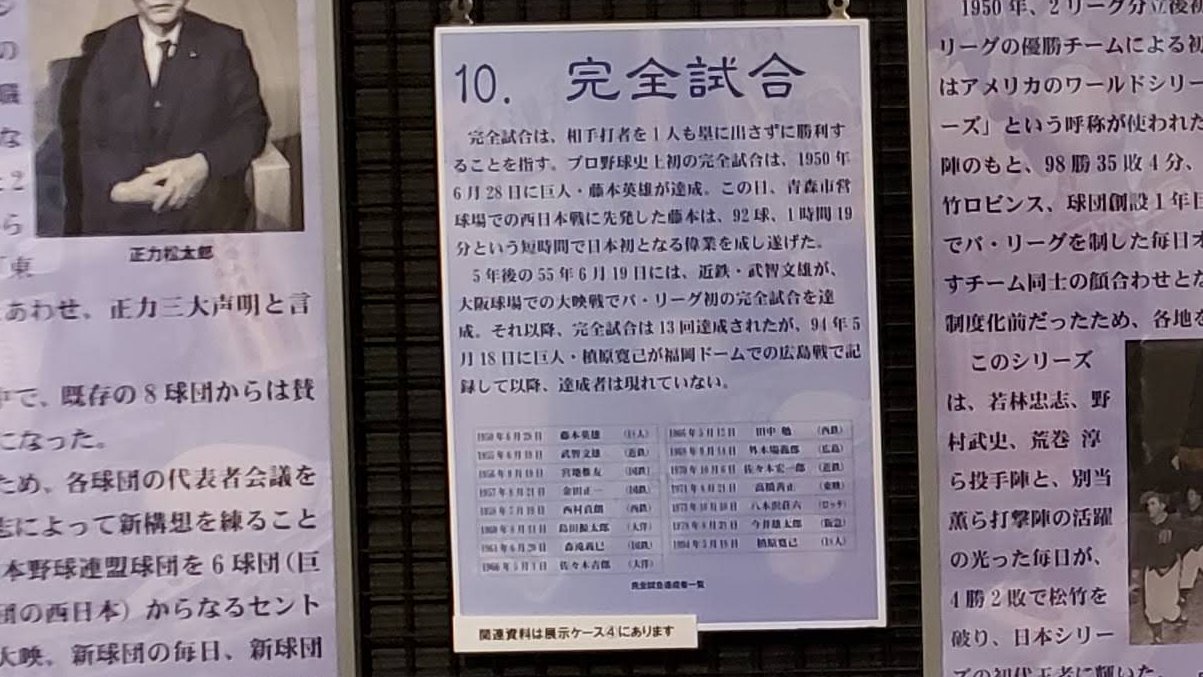 の
職
な
と2
ら
「東
正力松太郎
あわせ、正力三大声明と言
中で、既存の8球団からは賛
になった。
ため、各球団の代表者会議を
志によって新構想を練ること
本野球連盟球団を6球団(巨
団の西日本)からなるセント
大映、新球団の毎日、新球団
10. 完全試合
完全試合は、相手打者を1人も塁に出さずに勝利す
ることを指す。プロ野球史上初の完全試合は、1950年
6月28日に巨人・藤本英雄が達成。この日、青森市営
球場での西日本戦に先発した藤本は、92球、1時間19
分という短時間で日本初となる偉業を成し遂げた。
5年後の55年6月19日には、近鉄・武智文雄が、
大阪球場での大映戦でパ・リーグ初の完全試合を達
成。それ以降、完全試合は13回達成されたが、94年5
月18日に巨人・槙原寛己が福岡ドームでの広島戦で記
録して以降、達成者は現れていない。
1950年6月28日 藤本英雄 (巨人)
1955年6月19日 武智文雄 (近鉄)
1956年9月19日 宮地惟友 (国鉄)
1957年8月21日 金田正一 (国鉄)
1958年7月19日 西村貞朗 (西鉄)
1960年8月11日 島田源太郎 (大洋)
1961年6月20日 森滝義巳 (国鉄)
1966年5月1日 佐々木吉郎 (大洋)
1966年5月12日 田中 勉 (西鉄)
1968年9月14日 外木場義郎 (広島)
1970年10月6日 佐々木宏一郎 (近鉄)
1971年8月21日 高橋善正 (東映)
1973年10月10日 八木沢荘六 (ロッテ)
1978年8月31日 今井雄太郎 (阪急)
1994年5月18日 槙原寛己 (巨人)
完全試合達成者一覧
関連資料は展示ケース4にあります
1950年、2リーグ分立後初
リーグの優勝チームによる初
はアメリカのワールドシリー
ーズ」という呼称が使われた
陣のもと、98勝35敗4分、
竹ロビンス、球団創設1年目
でパ・リーグを制した毎日オ
すチーム同士の顔合わせとな
制度化前だったため、各地を
このシリーズ
は、若林忠志、野
村武史、荒巻 淳
ら投手陣と、別当
薫ら打撃陣の活躍
の光った毎日が、
4勝2敗で松竹を
破り、日本シリー
ズの初代王者に輝いた。